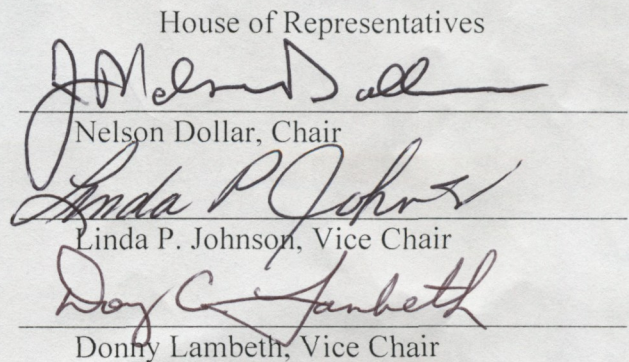 House of Representatives
J Nelson Dollar
Nelson Dollar, Chair
Linda P Johnson
Linda P. Johnson, Vice Chair
Donny C Lambeth
Donny Lambeth, Vice Chair